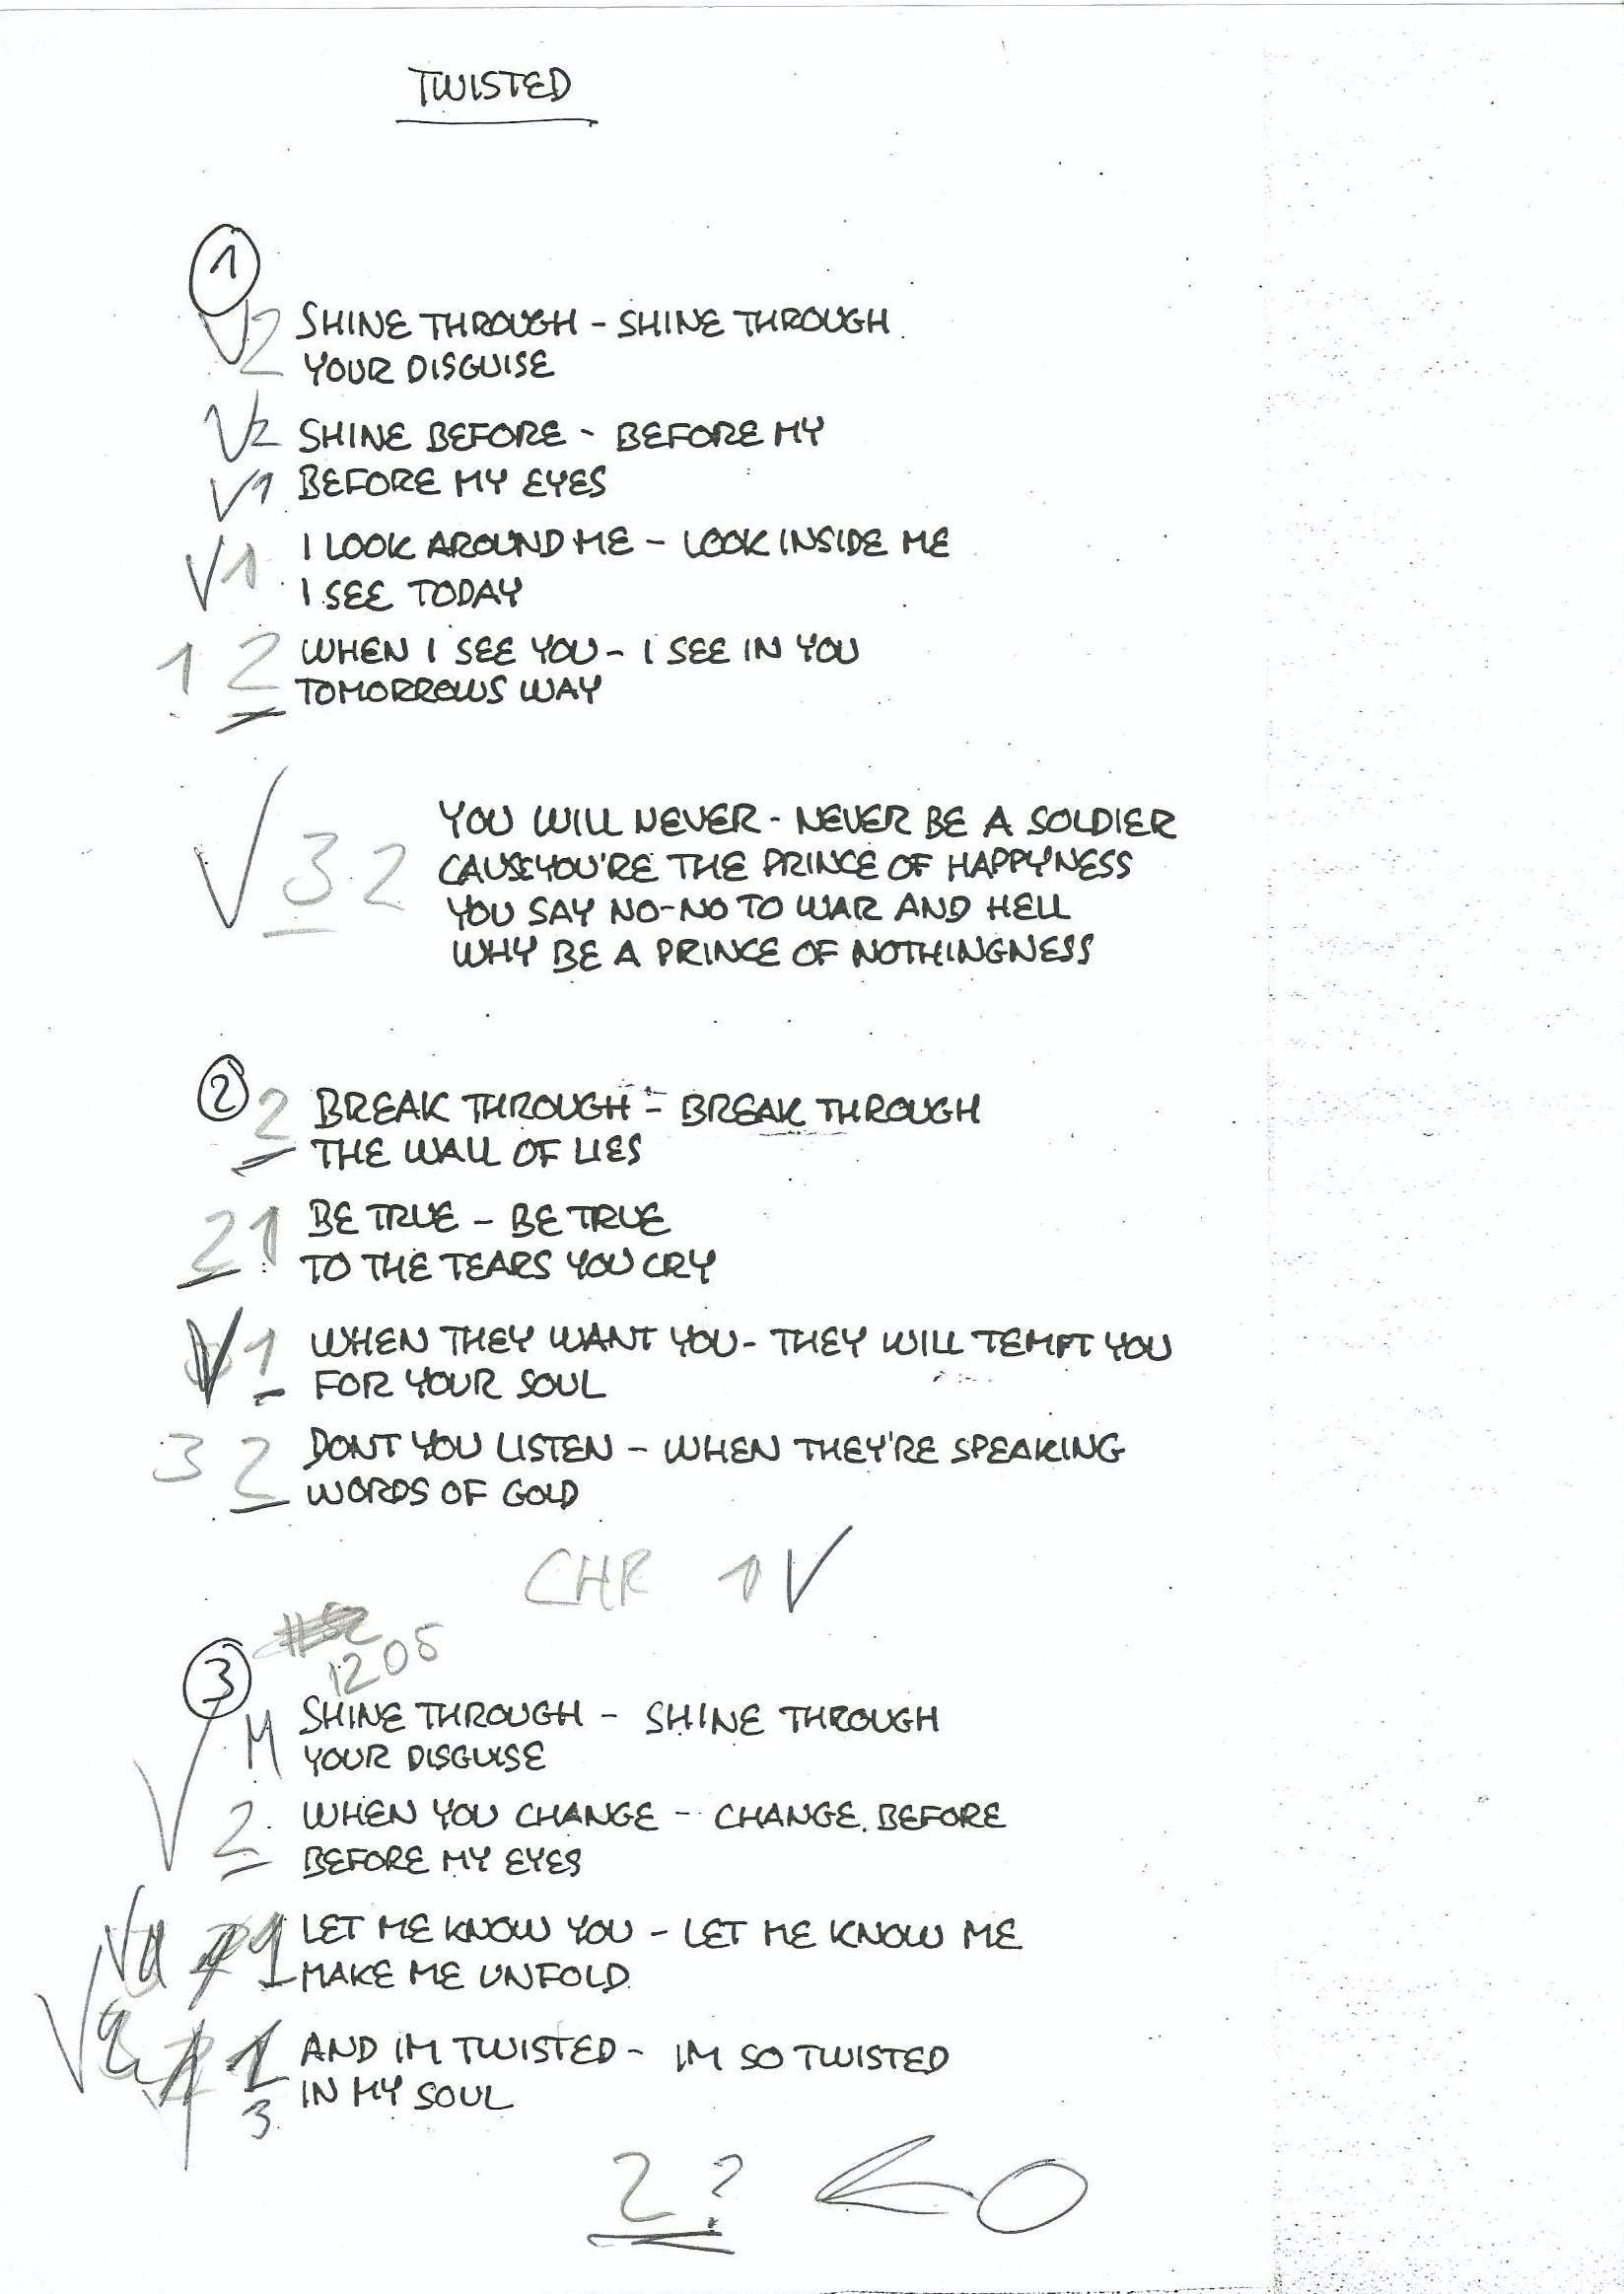 TWISTED
1
V2 SHINE THROUGH - SHINE THROUGH
YOUR DISGUISE
V2 SHINE BEFORE - BEFORE MY
V1 BEFORE MY EYES
V1 I LOOK AROUND ME - LOOK INSIDE ME
I SEE TODAY
1 2 WHEN I SEE YOU - I SEE IN YOU
TOMORROWS WAY
YOU WILL NEVER - NEVER BE A SOLDIER
CAUSE YOU'RE THE PRINCE OF HAPPYNESS
V 3 2
YOU SAY NO-NO TO WAR AND HELL
WHY BE A PRINCE OF NOTHINGNESS
2
2 BREAK THROUGH - BREAK THROUGH
THE WALL OF LIES
2 1 BE TRUE - BE TRUE
TO THE TEARS YOU CRY
V 1 WHEN THEY WANT YOU - THEY WILL TEMPT YOU
FOR YOUR SOUL
3 2 DONT YOU LISTEN - WHEN THEY'RE SPEAKING
WORDS OF GOLD
CHR 1 V
3
1205
M SHINE THROUGH - SHINE THROUGH
YOUR DISGUISE
2 WHEN YOU CHANGE - CHANGE BEFORE
BEFORE MY EYES
1 LET ME KNOW YOU - LET ME KNOW ME
MAKE ME UNFOLD
1 AND IM TWISTED - IM SO TWISTED
3 IN MY SOUL
2 ?